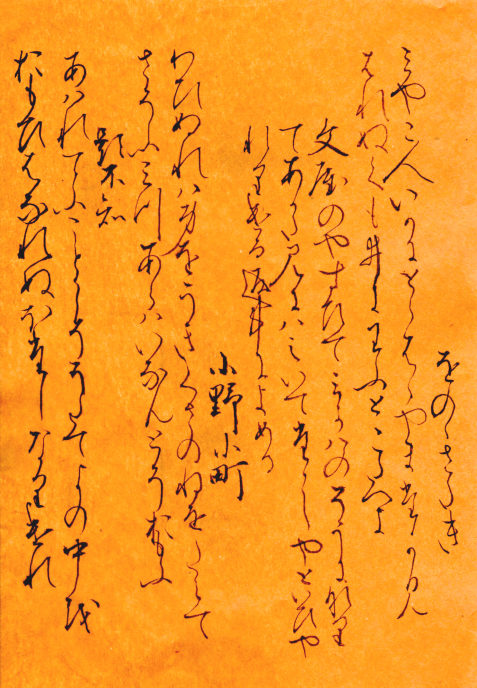 をのゝさたき
みやこ人いかにとゝはゝやまたかみ
はれぬくもゐにわふとこたへよ
文屋のやすひてみかはのそうになり
てあかた見にはえいてたゝしやといひや
れりける返事によめる
小野小町
わひぬれは身をうきくさのねをたえて
さそふみつあらはいなんとそおもふ
題不知
あはれてふことこそうたてよの中を
おもひはなれぬほたしなりけれ